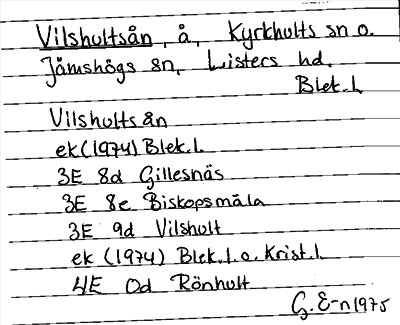 Vilshultsån, å, Kyrkhults sn o.
Jämshögs sn, Listers hd.
Blek.l.
Vilshultsån
ek (1974) Blek.l.
3E 8d Gillesnäs
3E 8e Biskopsmåla
3E 9d Vilshult
ek (1974) Blek.l. o. Krist.l.
4E 0d Rönhult
G. E-n 1975